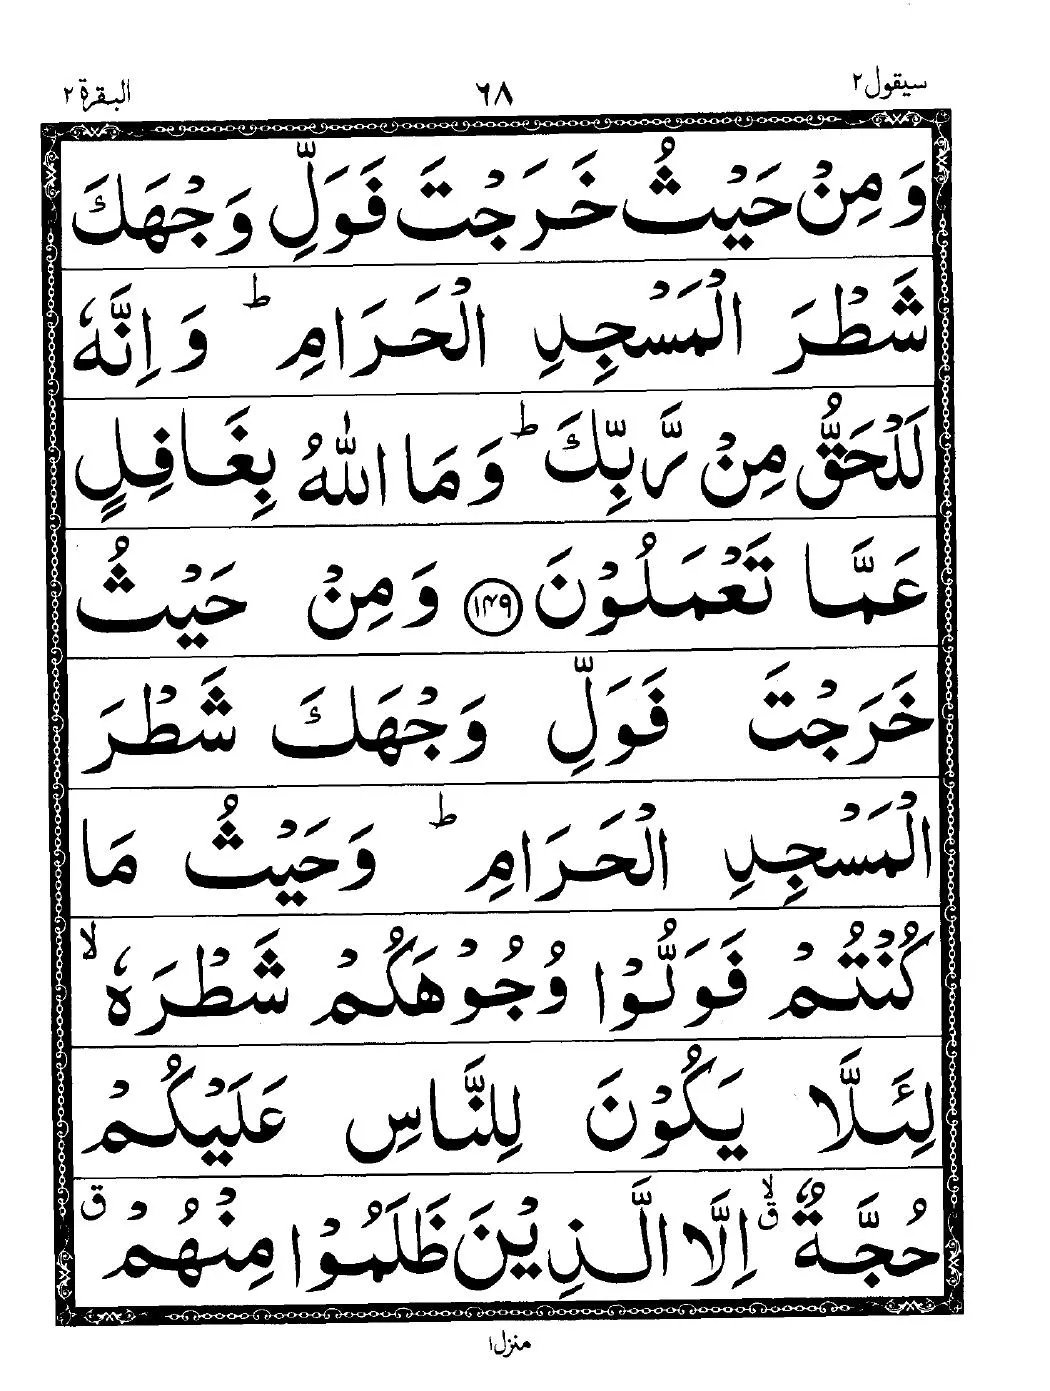 سيقول ٢ ٦٨ البقرة ٢
وَ مِنْ حَيْثُ خَرَجْتَ فَوَلِّ وَجْهَكَ
شَطْرَ الْمَسْجِدِ الْحَرَامِ ؕ وَ اِنَّهٗ
لَلْحَقُّ مِنْ رَّبِّكَ ؕ وَ مَا اللّٰهُ بِغَافِلٍ
عَمَّا تَعْمَلُوْنَ ﴿۱۴۹﴾ وَ مِنْ حَيْثُ
خَرَجْتَ فَوَلِّ وَجْهَكَ شَطْرَ
الْمَسْجِدِ الْحَرَامِ ؕ وَحَيْثُ مَا
كُنْتُمْ فَوَلُّوْا وُجُوْهَكُمْ شَطْرَهٗ ۙ
لِئَلَّا يَكُوْنَ لِلنَّاسِ عَلَيْكُمْ
حُجَّةٌ ۙق اِلَّا الَّذِيْنَ ظَلَمُوْا مِنْهُمْ ق
منزل ١